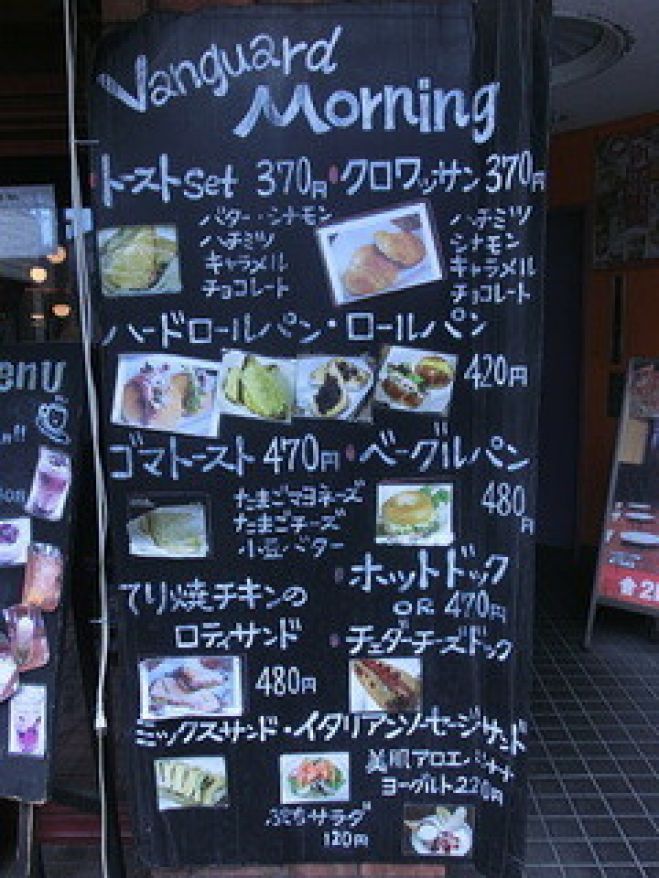 Vanguard
Morning
トーストSet 370円・クロワッサン370円
バター・シナモン
ハチミツ
キャラメル
チョコレート
ハチミツ
シナモン
キャラメル
チョコレート
ハードロールパン・ロールパン
420円
ゴマトースト 470円・ベーグルパン
たまごマヨネーズ
たまごチーズ
小豆バター
480円
・ホットドック
OR 470円
・チェダーチーズドック
てり焼チキンの
ロティサンド
480円
ミックスサンド・イタリアンソーセージサンド
美肌アロエバナナ
ヨーグルト220円
ぷちサラダ
120円
enu